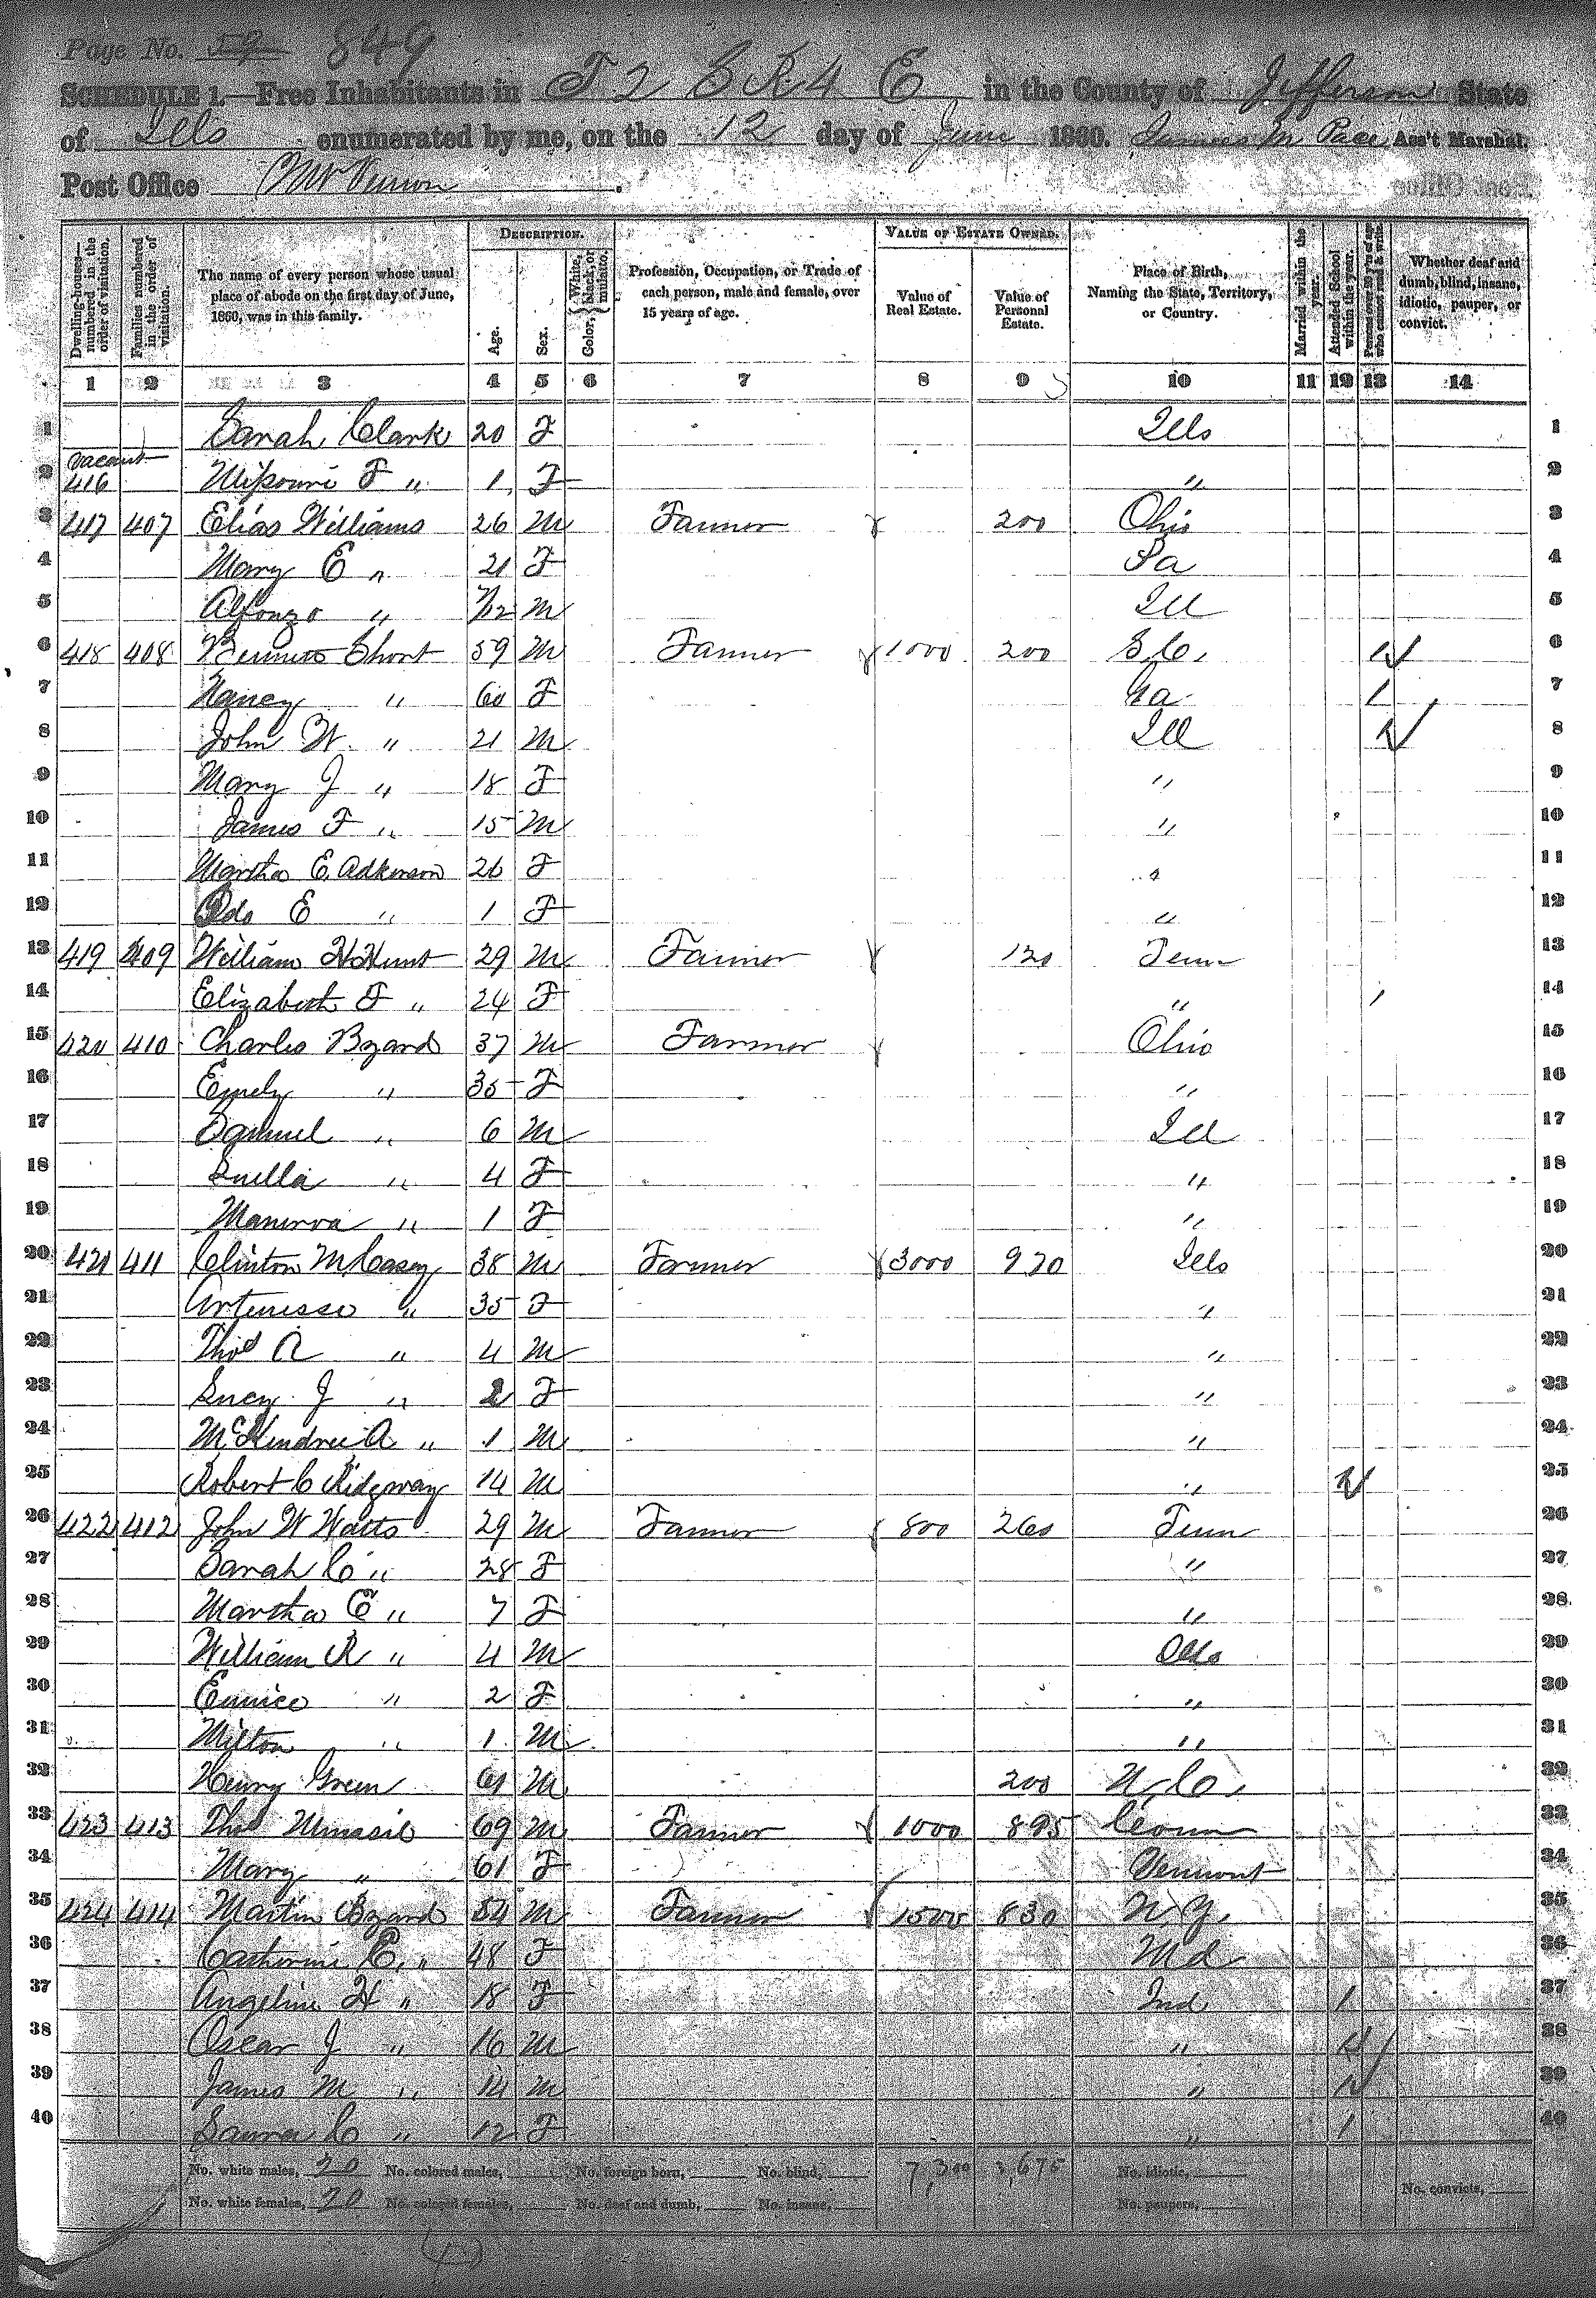 Page No. 59 849
SCHEDULE 1.—Free Inhabitants in T 2 S R 4 E in the County of Jefferson State
of Ills enumerated by me, on the 12 day of June 1860. James M Pace Ass't Marshal.
Post Office Mt Vernon
Dwelling-houses—numbered in the order of visitation.
Families numbered in the order of visitation.
The name of every person whose usual place of abode on the first day of June, 1860, was in this family.
DESCRIPTION.
Age.
Sex.
Color, White, black, or mulatto.
Profession, Occupation, or Trade of each person, male and female, over 15 years of age.
VALUE OF ESTATE OWNED.
Value of Real Estate.
Value of Personal Estate.
Place of Birth, Naming the State, Territory, or Country.
Married within the year.
Attended School within the year.
Persons over 20 y'rs of age who cannot read & write.
Whether deaf and dumb, blind, insane, idiotic, pauper, or convict.
1 2 3 4 5 6 7 8 9 10 11 12 13 14
1 Sarah Clark 20 F Ills 1
2 vacant 416 Missouri F " 1 F " 2
3 417 407 Elias Williams 26 M Farmer 200 Ohio 3
4 Mary E " 21 F Pa 4
5 Alfonzo " 7/12 M Ill 5
6 418 408 Bennett Short 59 M Farmer 1000 200 S.C. 1 6
7 Nancy " 60 F Ga 1 7
8 John W. " 21 M Ill 1 8
9 Mary J " 18 F " 9
10 James F " 15 M " 10
11 Martha E. Adkerson 26 F " 11
12 Ada E " 1 F " 12
13 419 409 William H Hunt 29 M Farmer 120 Tenn 13
14 Elizabeth F " 24 F " 1 14
15 420 410 Charles Bzard 37 M Farmer Ohio 15
16 Emely " 35 F " 16
17 Samuel " 6 M Ill 17
18 Luella " 4 F " 18
19 Manerva " 1 F " 19
20 421 411 Clinton M Casey 38 M Farmer 3000 920 Ills 20
21 Artenissa " 35 F " 21
22 Thos A " 4 M " 22
23 Lucy J " 2 F " 23
24 McKendree A " 1 M " 24
25 Robert C Ridgway 14 M " 1 25
26 422 412 John W Watts 29 M Farmer 800 260 Tenn 26
27 Sarah C " 28 F " 27
28 Martha E " 7 F " 28
29 William R " 4 M Ills 29
30 Eunice " 2 F " 30
31 Milton " 1 M " 31
32 Henry Green 61 M 200 N.C. 32
33 423 413 Thos 69 M Farmer 1000 895 Conn 33
34 Mary " 61 F Vermont 34
35 424 414 Martin Bzard 54 M Farmer 1500 830 N.Y. 35
36 Catherine E. " 48 F Md 36
37 Angeline H " 18 F Ind 1 37
38 Oscar J " 16 M " 1 38
39 James M " 14 M " 1 39
40 Laura C " 12 F " 1 40
No. white males, 20 No. colored males, No. foreign born, No. blind, 7,300 3,675 No. idiotic,
No. white females, 20 No. colored females, No. deaf and dumb, No. insane, No. paupers, No. convicts,